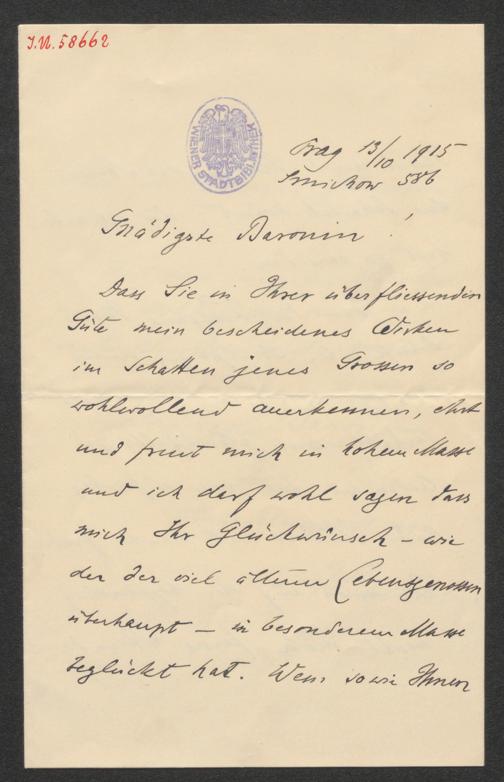 J.N. 58662
WIENER STADTBIBLIOTHEK
Prag 13/10 1915
Smichow 586
Gnädigste Baronin!
Dass Sie in Ihrer überfliessenden
Güte mein bescheidenes Wirken
im Schatten jenes Grossen so
wohlwollend anerkennen, ehrt
und freut mich in hohem Masse
und ich darf wohl sagen dass
mich Ihr Glückwünsch – wie
der der viel älteren Lebensgenossen
überhaupt – in besonderem Masse
beglückt hat. Wem sowie Ihnen